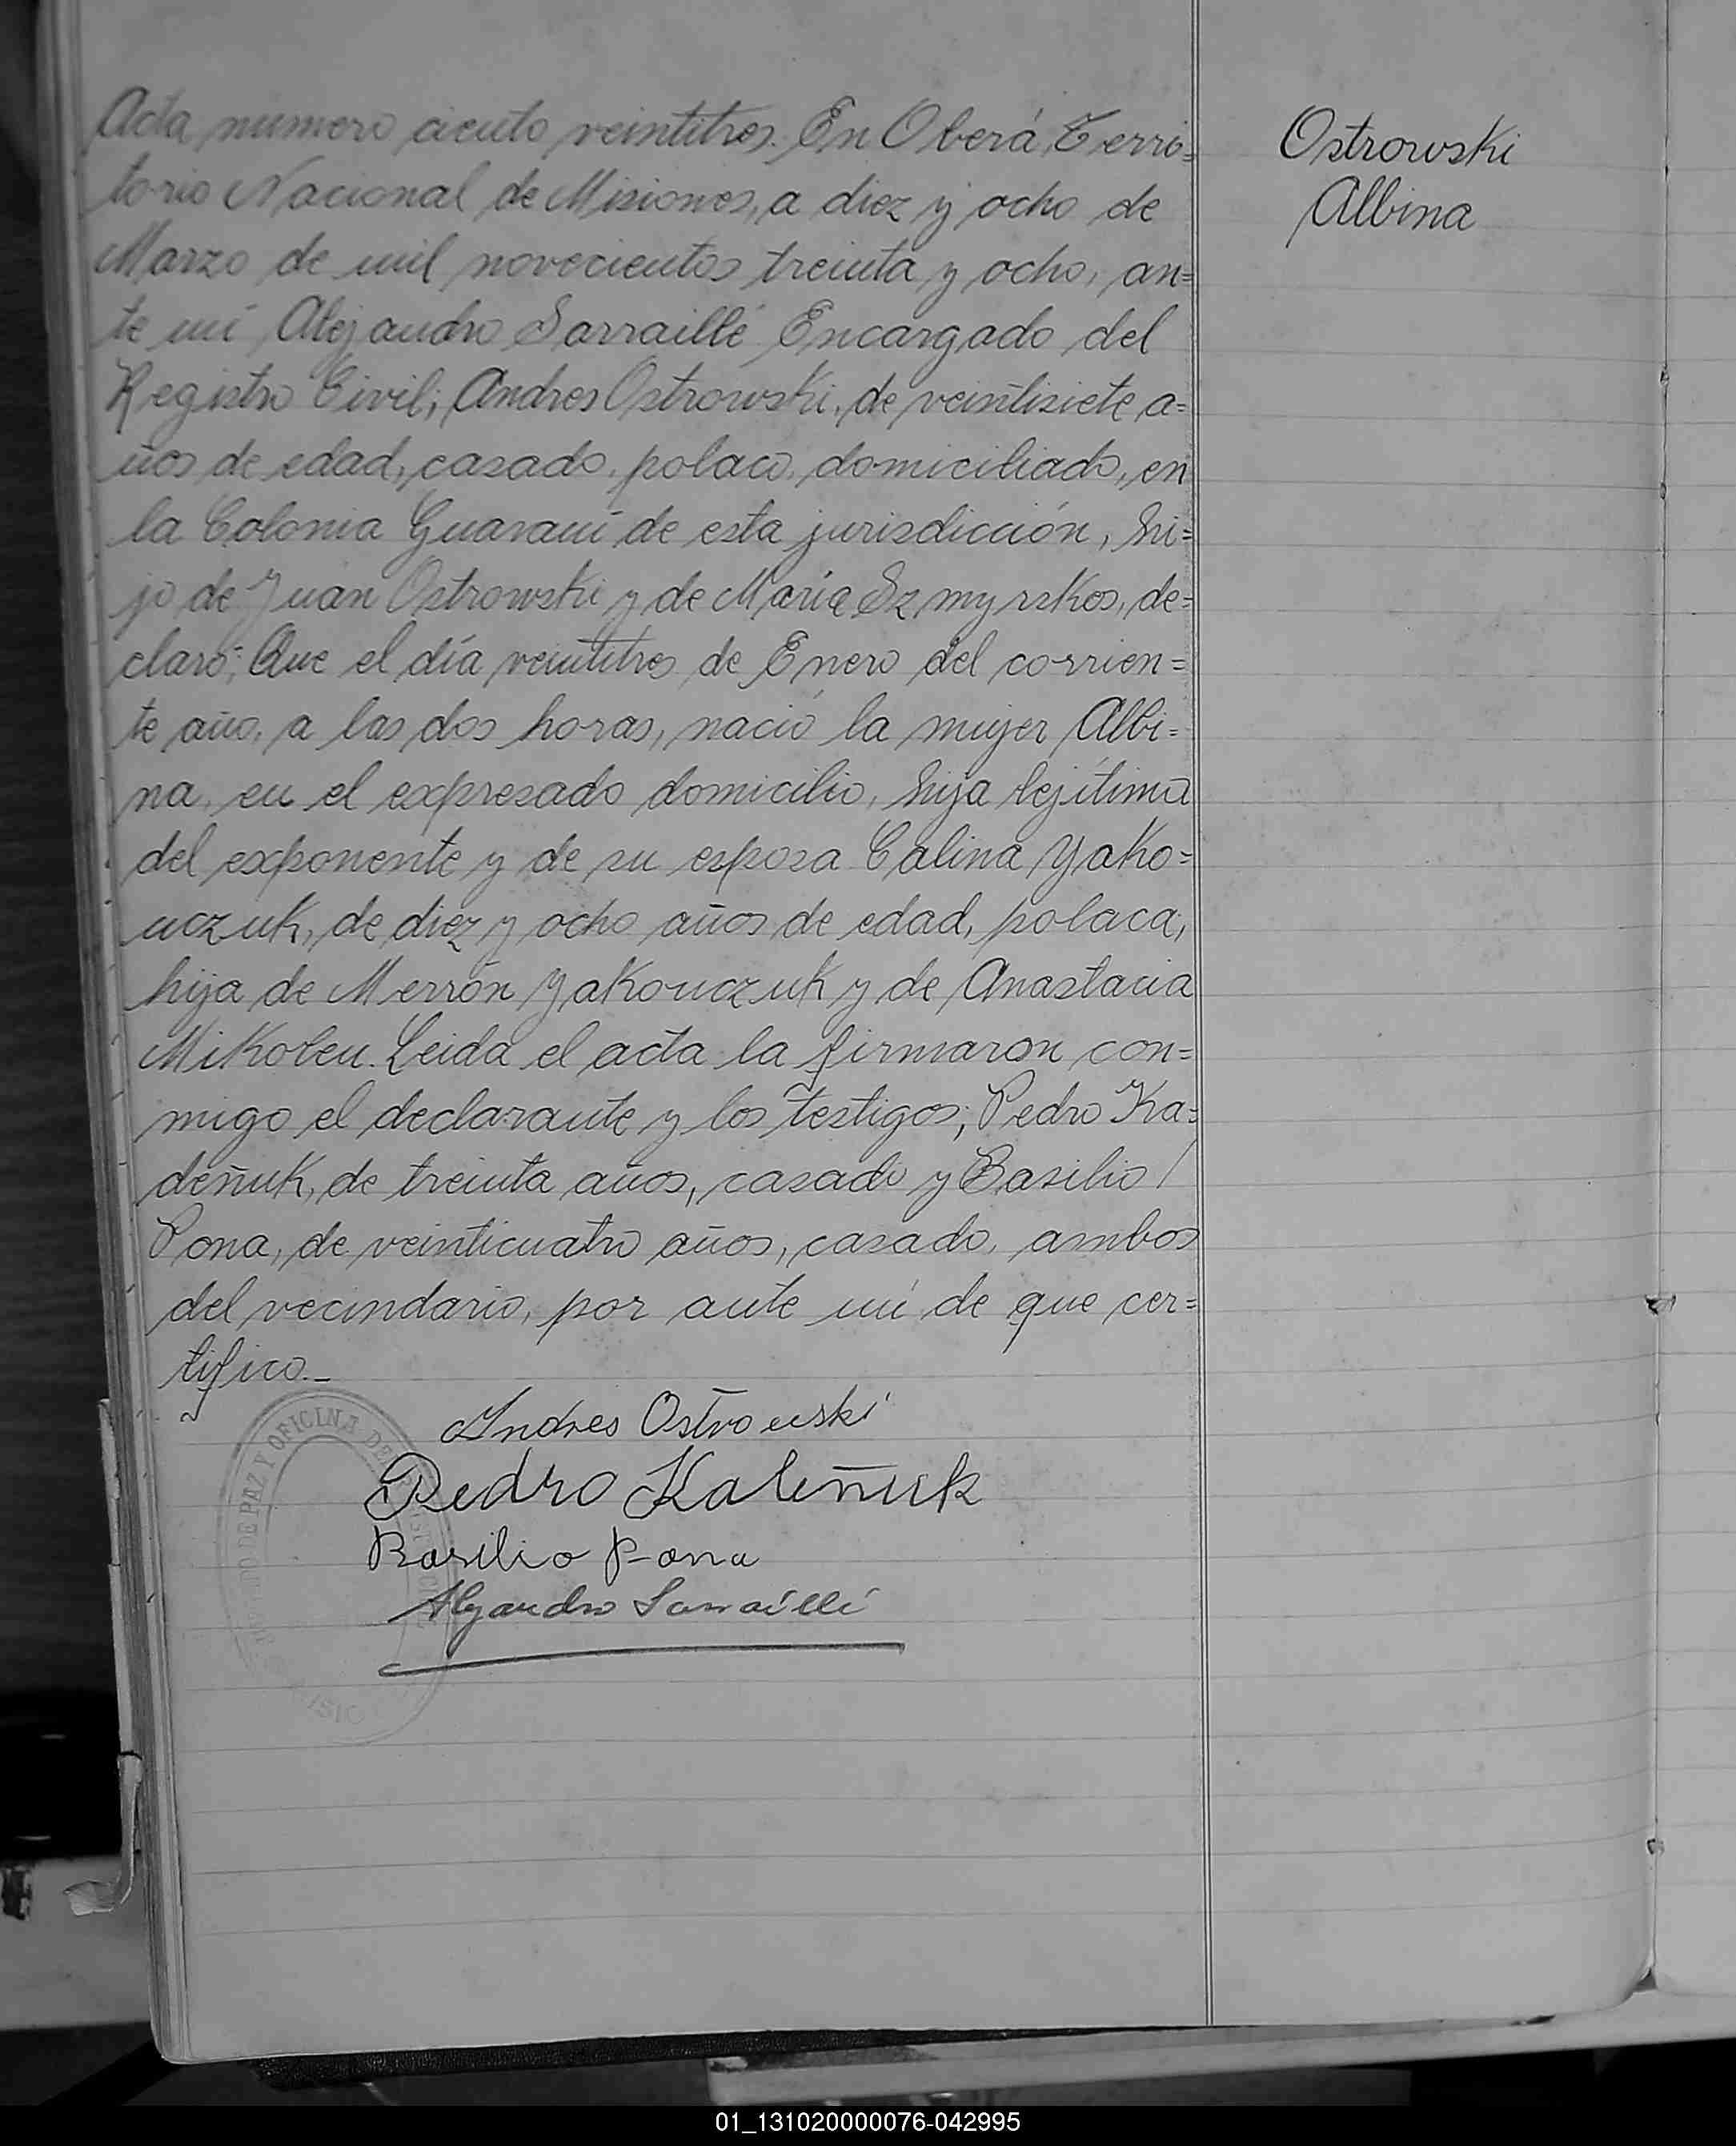 Acta numero ciento veintitres. En Oberá, Terri=
torio Nacional de Misiones, a diez y ocho de
Marzo de mil novecientos treinta y ocho, an=
te mí, Alejandro Sarraillé Encargado del
Registro Civil; Andres Ostrowski, de veintisiete a=
ños de edad, casado, polaco, domiciliado, en
la Colonia Guaraní de esta jurisdicción, hi=
jo de Juan Ostrowski y de María Szmyrskos, de=
claró: Que el día veintitres de Enero del corrien=
te año, a las dos horas, nació la mujer Albi=
na, en el expresado domicilio, hija lejítima
del exponente y de su esposa Calina Yako=
uczuk, de diez y ocho años de edad, polaca,
hija de Merrón Yakouczuk y de Anastacia
Mikoleu. Leida el acta la firmaron con=
migo el declarante y los testigos; Pedro Ka=
deñuk, de treinta años, casado y Basilio /
Pona, de veinticuatro años, casado, ambos
del vecindario, por ante mí de que cer=
tifico._
Andres Ostrouski
Pedro Kaleñuk
Basilio Pona
Alejandro Sarraillé
DE PAZ Y OFICINA DE
Ostrowski
Albina
01_131020000076-042995